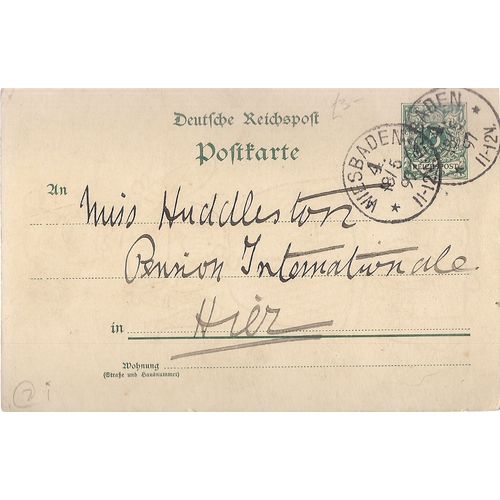 £3-
Deutsche Reichspost
Postkarte
WIESBADEN
4
18/5
97
11-12V.
REICHSPOST
An
Miss Huddleston
Pension Internationale
in Hier
Wohnung
(Straße und Hausnummer)